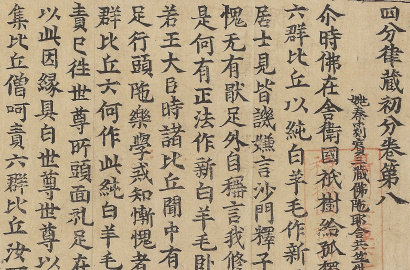 四分律藏初分卷第八
姚秦
三藏佛陀耶舍共竺
尒時佛在舍衛國祇樹給孤獨
六群比丘以純白羊毛作新
居士見皆譏嫌言沙門釋子
愧无有猒足外自稱言我修
是何有正法作新白羊毛臥
若王大臣時諸比丘聞中有
足行頭陁樂學戒知慚愧者
群比丘云何作此純白羊毛
責已徃世尊所頭面礼足在
以此因緣具白世尊世尊以
集比丘僧呵責六群比丘汝